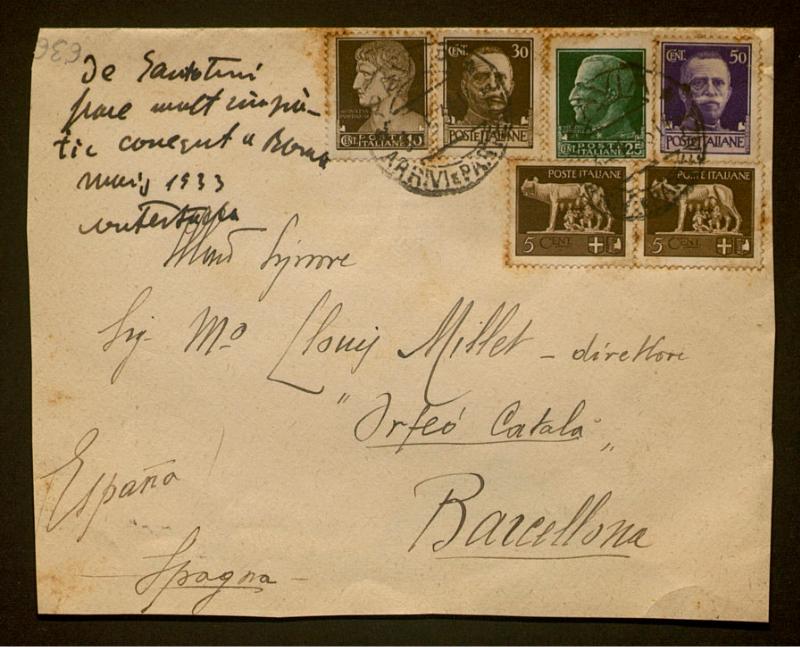 636
De Santotini
pare molt simpà-
tic conegut a Roma
maig 1933
contestada
CENT. 10 POSTE ITALIANE
CENT. 30 POSTE ITALIANE
CENT POSTE ITALIANE 25
CENT. 50 POSTE ITALIANE
ARRIVI E PAR
POSTE ITALIANE
5 CENT
POSTE ITALIANE
5 CENT
Illmo Signore
Sig. Mo Lluis Millet - direttore
"Orfeó Català"
Barcellona
España
- Spagna -